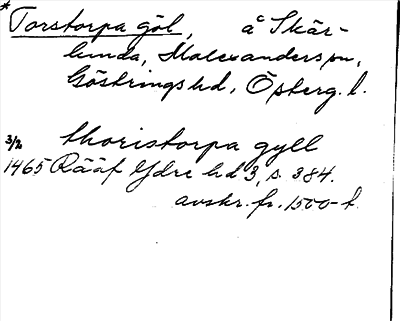 * Torstorpa göl, å Skär-
lunda, Malexanders sn,
Göstrings hd, Österg. l.
thoristorpa gyll
3/2
1465 Rääf Ydre hd 3, s. 384.
avskr. fr. 1500-t.